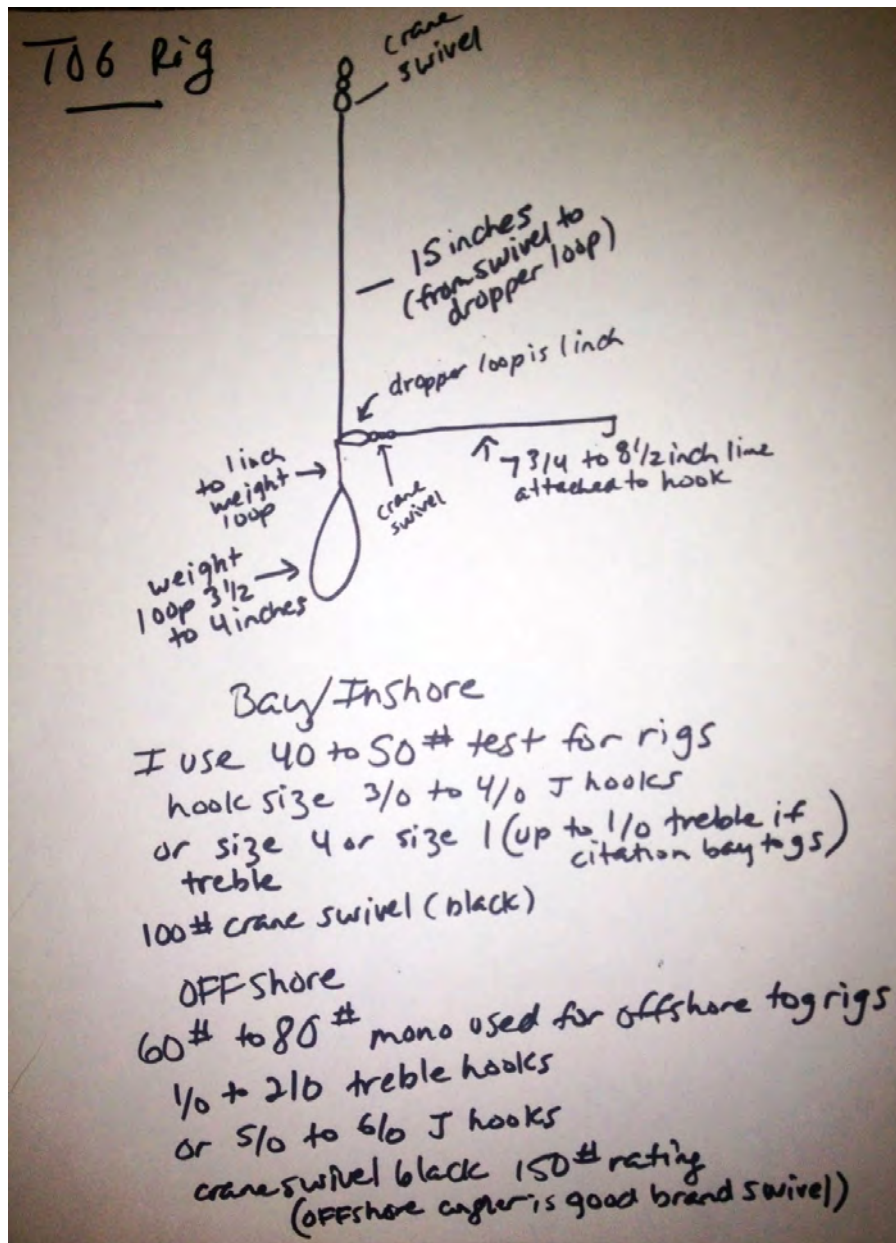 TOG Rig
crane
swivel
15 inches
(from swivel to
dropper loop)
dropper loop is 1 inch
1 inch
to
weight
loop
crane
swivel
7 3/4 to 8 1/2 inch line
attached to hook
weight
loop 3 1/2
to 4 inches
Bay/Inshore
I use 40 to 50# test for rigs
hook size 3/0 to 4/0 J hooks
or size 4 or size 1 (up to 1/0 treble if
citation bay togs)
treble
100# crane swivel (black)
OFFshore
60# to 80# mono used for offshore tog rigs
1/0 to 2/0 treble hooks
or 5/0 to 6/0 J hooks
crane swivel black 150# rating
(OFFshore angler is good brand swivel)